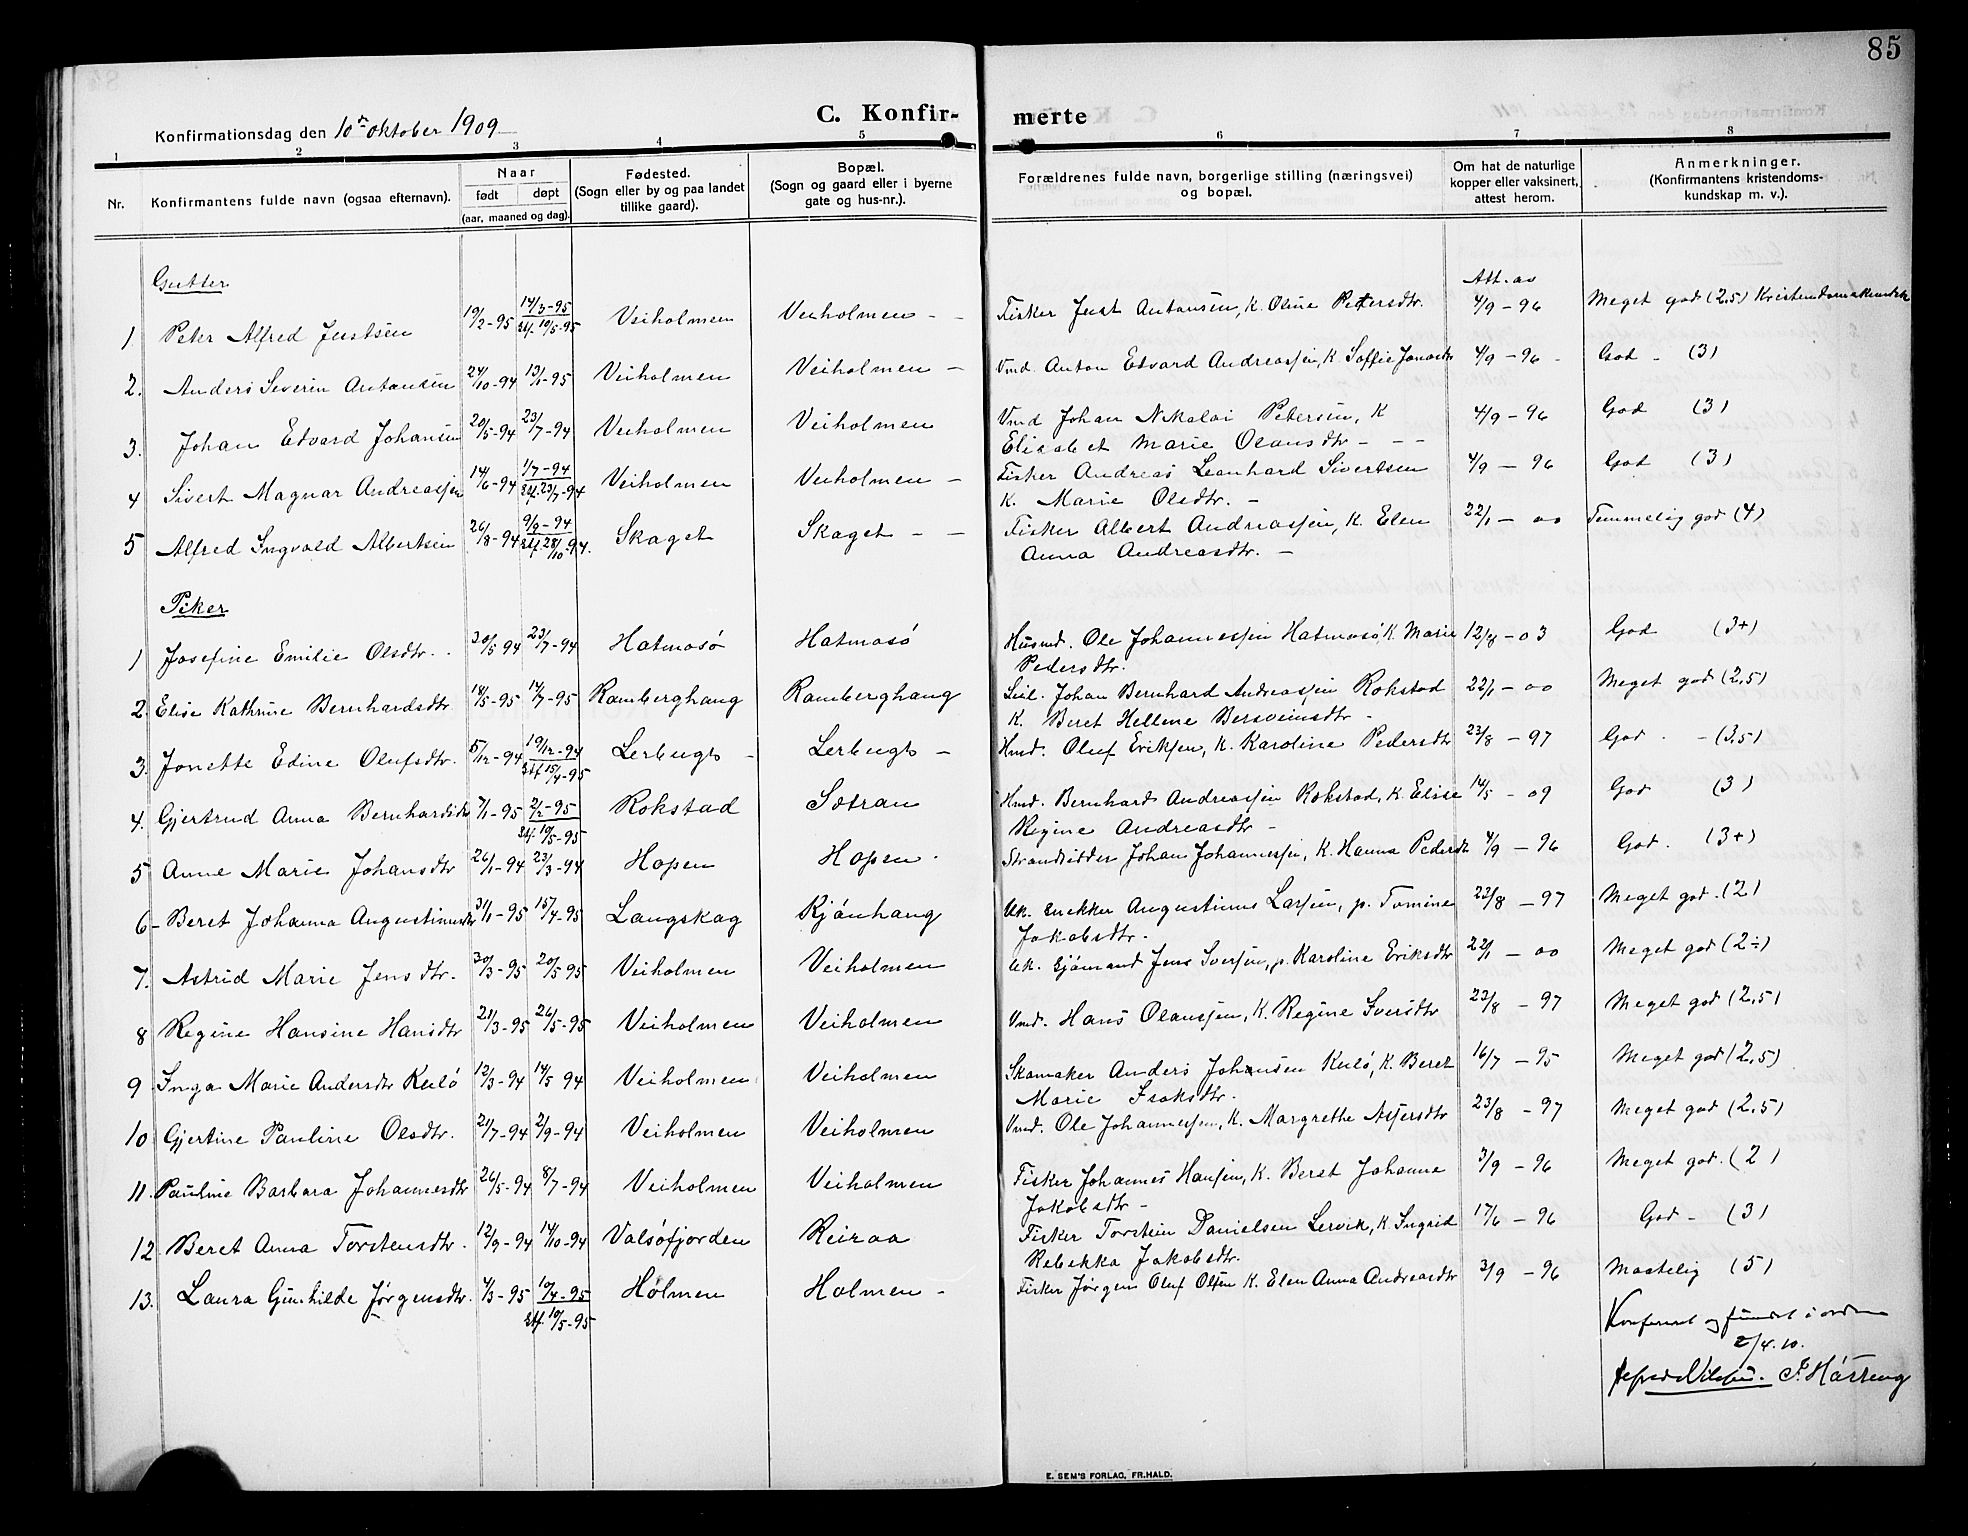 85
Konfirmationsdag den 10de oktober 1909
C. Konfir-
merte
1 2 3 4 5 6 7 8
Nr.
Konfirmantens fulde navn (ogsaa efternavn).
Naar
født døpt
(aar, maaned og dag).
Fødested.
(Sogn eller by og paa landet
tillike gaard).
Bopæl.
(Sogn og gaard eller i byerne
gate og hus-nr.).
Forældrenes fulde navn, borgerlige stilling (næringsvei)
og bopæl.
Om hat de naturlige
kopper eller vaksinert,
attest herom.
Anmerkninger.
(Konfirmantens kristendoms-
kundskap m. v.).
Gutter
Att. av
1 Peter Alfred Justsen 19/2-95 14/3-95 Stf. 19/5-95 Veiholmen Veiholmen - - Fisker Just Antonsen, K. Oline Petersdtr. 4/9-96 Meget god (2,5) Kristendomskundsk
2. Anders Severin Antonsen 24/10-94 13/1-95 Veiholmen Veiholmen - Vmd. Anton Edvard Andreassen, K. Soffie Jonasdtr 4/9-96 - God - (3)
3. Johan Edvard Johansen 20/5-94 23/7-94 Veiholmen Veiholmen Vmd Johan Nikolai Petersen, K
Elisabet Marie Olausdtr - - - 4/9-96 God (3)
4 Sivert Magnar Andreassen 14/6-94 1/7-94 Stf. 23/7-94 Veiholmen Veiholmen - Fisker Andreas Leonhard Sivertsen
K. Marie Olsdtr. - 4/9-96 God (3)
5 Alfred Ingvald Albertsen 26/8-94 9/9-94 Stf. 28/10-94. Skaget Skaget - - Fisker Albert Andreassen, K. Elen
Anna Andreasdtr. - 22/1-00 Temmelig god (4)
Piker
1 Josefine Emilie Olsdtr. 30/5 94 23/7-94 Hatmosø Hatmosø Husmd. Ole Johannessen Hatmosø K. Marie
Pedersdtr. 12/8-03 God (3+)
2. Elise Kathrine Bernhardsdtr 18/5-95 14/7-95 Ramberghaug Ramberghaug Seil. Johan Bernhard Andreassen Rokstad
K. Beret Hellene Bersveinsdtr - 22/1-00 Meget god (2,5)
3. Jonette Edine Olufsdtr. 5/12-94 19/12-94 Stf 15/4-95 Lerbugt - Lerbugt - Hmd. Oluf Eriksen, K. Karoline Pedersdtr 23/8-97 God - (3,5)
4. Gjertrud Anna Bernhardsdtr 7/1-95 2/2-95 Stf. 19/5-95 Rokstad Sætran Hmd. Bernhard Andreassen Rokstad, K. Elise
Regine Andreasdtr - 14/5-09 God (3)
5 Anne Marie Johansdtr 26/1-94 23/3-94 Hopen Hopen. Strandsidder Johan Johannessen, K. Hanna Pedersdtr 4/9-96 God. (3+)
6- Beret Johanna Augustinusdtr 31/1-95 15/4-95 Langskag Kjönhaug Uk. snekker Augustinus Larsen, p. Tomine
Jakobsdtr. 23/8-97 Meget god. (2)
7. Astrid Marie Jensdtr. 30/3-95 20/5 95 Veiholmen Veiholmen Uk. Sjömand Jens Iversen, p. Karoline Eriksdtr 22/1-00 Meget god (2÷)
8 Regine Hansine Hansdtr 21/3-95 26/5-95 Veiholmen Veiholmen Vmd. Hans Olaussen, K. Regine Iversdtr 23/8-97 Meget god (2,5)
9 Inga Marie Andersdtr Keilø 12/3-94 14/5 94 Veiholmen Veiholmen Skomaker Anders Johansen Keilø, K. Beret
Marie Isaksdtr. 16/7-95 Meget god (2,5)
10 Gjertine Pauline Olsdtr. 21/7-94 2/9-94 Veiholmen Veiholmen Vmd. Ole Johannessen, K. Margrethe Asjersdtr 23/8-97 Meget god (2,5)
11. Pauline Barbara Johannesdtr 26/5-94 8/7-94 Veiholmen Veiholmen Fisker Johannes Hansen, K. Beret Johanna
Jakobsdtr - 3/9-96 Meget god. (2)
12 Beret Anna Torstensdtr. 12/9-94 14/10-94 Valsøfjorden Reiraa Fisker Torstein Danielsen Lervik, K. Ingrid
Rebekka Jakobsdtr. 17/6-96 God - (3)
13. Laura Gunhilde Jørgensdtr. 4/3-95 10/4-95 Stf. 19/5-95 Holmen Holmen - Fisker Jørgen Oluf Olsen K. Elen Anna Andreasdtr 3/9-96 Maatelig (5)
Konferert og fundet i orden
2/4.10.
Alfred Nilsen. J. Hårstang
E. SEM'S FORLAG, FR.HALD.